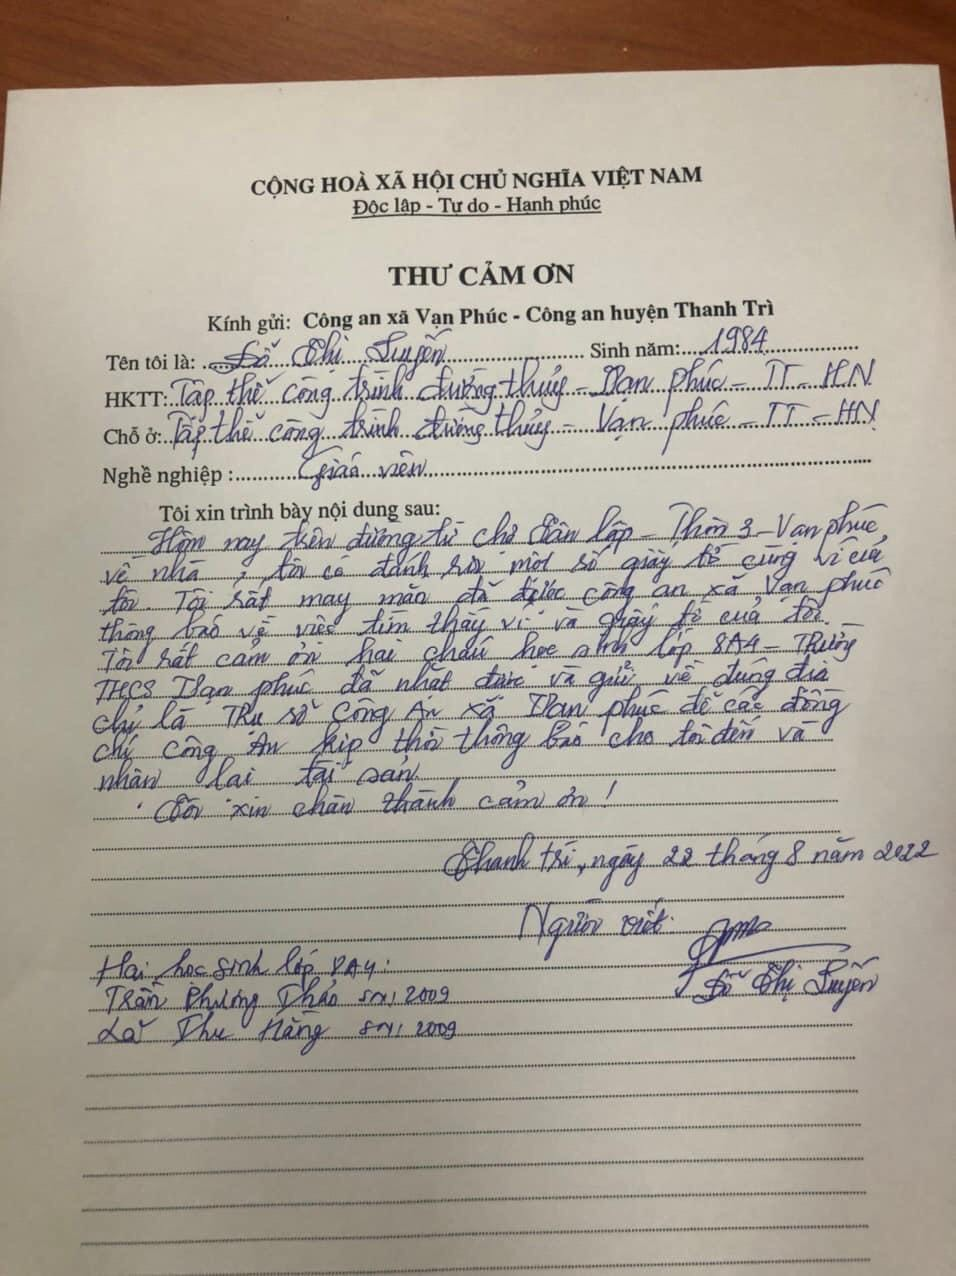 CỘNG HOÀ XÃ HỘI CHỦ NGHĨA VIỆT NAM
Độc lập - Tự do - Hạnh phúc
THƯ CẢM ƠN
Kính gửi: Công an xã Vạn Phúc - Công an huyện Thanh Trì
Tên tôi là: Đỗ Thị Luyến Sinh năm: 1984
HKTT: Tập thể công trình đường thủy - Vạn phúc - TT - HN
Chỗ ở: Tập thể công trình đường thủy - Vạn phúc - TT - HN
Nghề nghiệp: Giáo viên
Tôi xin trình bày nội dung sau:
Hôm nay trên đường từ chợ dân lập - Thôn 3 - Vạn phúc
về nhà, tôi có đánh rơi một số giấy tờ cùng ví của
tôi. Tôi rất may mắn đã được công an xã Vạn phúc
thông báo về việc tìm thấy ví và giấy tờ của tôi.
Tôi rất cảm ơn hai cháu học sinh lớp 8A4 - Trường
THCS Vạn phúc đã nhặt được và gửi về đúng địa
chỉ là Trụ sở Công An xã Vạn phúc để các đồng
chí công An kịp thời thông báo cho tôi đến và
nhận lại tài sản.
Tôi xin chân thành cảm ơn!
Thanh trì, ngày 22 tháng 8 năm 2022
Người viết.
Đỗ Thị Luyến
Hai học sinh lớp 8A4:
Trần Phương Thảo SN: 2009
Lã Thu Hằng SN: 2009